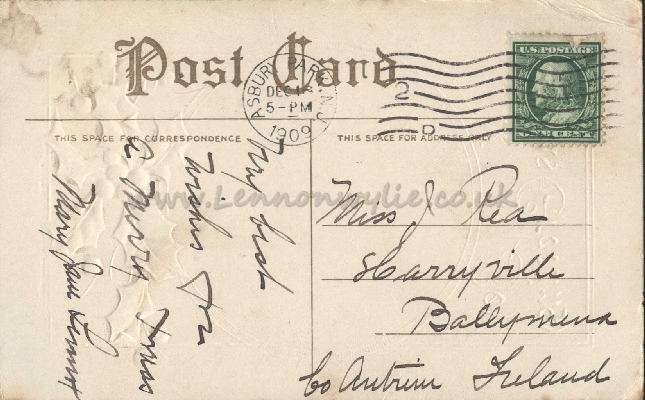 Post Card
ASBURY PARK, N.J.
DEC 1
5-PM
1909
2
D
U.S. POSTAGE
ONE CENT
THIS SPACE FOR CORRESPONDENCE
THIS SPACE FOR ADDRESS ONLY
www.Lennonwylie.co.uk
My best
wishes for
a Merry Xmas
Mary Jane Lennox
Miss J Rea
Harryville
Ballymena
Co Antrim Ireland